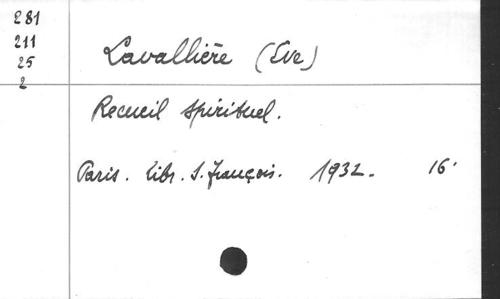 281
211
25
2
Lavallière (Eve)
Recueil spirituel.
Paris. Libr. S. François. 1932. 16°